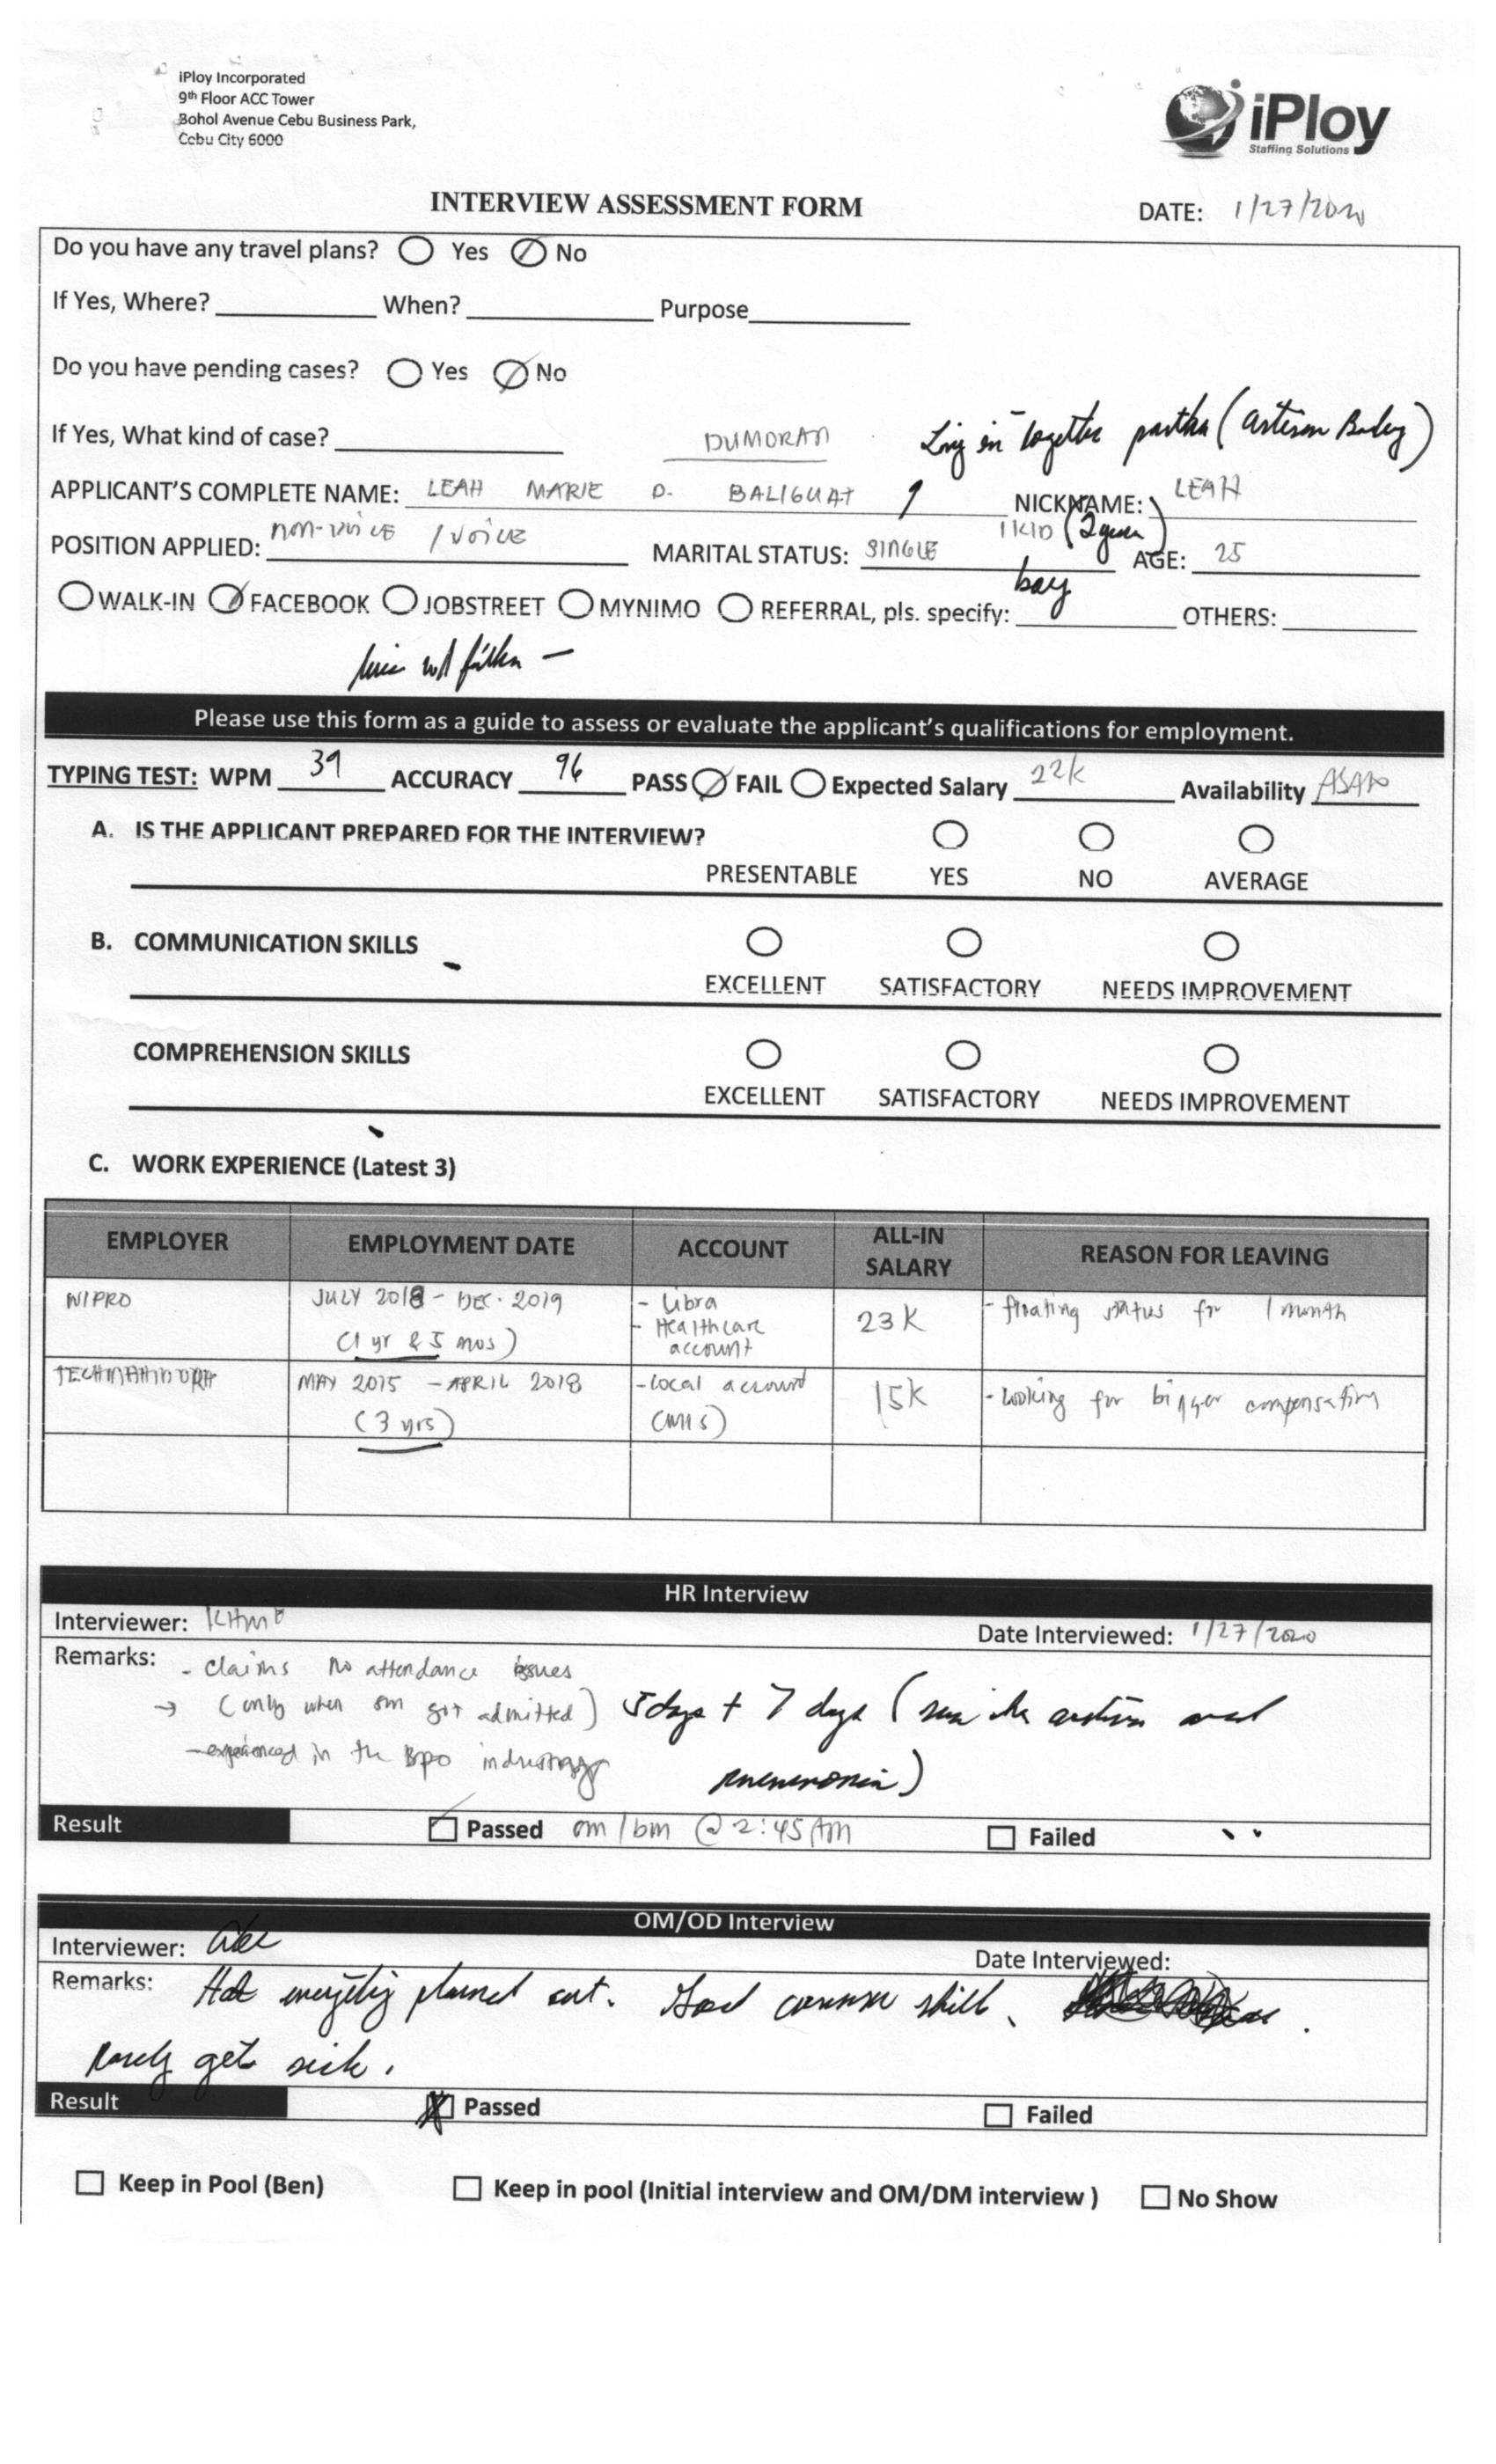 iPloy Incorporated
9th Floor ACC Tower
Bohol Avenue Cebu Business Park,
Cebu City 6000
iPloy
Staffing Solutions
INTERVIEW ASSESSMENT FORM
DATE: 1/27/2020
Do you have any travel plans? Yes No
If Yes, Where? When? Purpose
Do you have pending cases? Yes No
If Yes, What kind of case?
DUMORAN
in together
APPLICANT'S COMPLETE NAME: LEAH MARIE D. BALIGUAT NICKNAME: LEAH
POSITION APPLIED: non-voice / voice MARITAL STATUS: SINGLE 1 KID (2 AGE: 25
boy
WALK-IN FACEBOOK JOBSTREET MYNIMO REFERRAL, pls. specify: OTHERS:
Please use this form as a guide to assess or evaluate the applicant's qualifications for employment.
TYPING TEST: WPM 39 ACCURACY 96 PASS FAIL Expected Salary 22k Availability ASAP
A. IS THE APPLICANT PREPARED FOR THE INTERVIEW?
PRESENTABLE YES NO AVERAGE
B. COMMUNICATION SKILLS
EXCELLENT SATISFACTORY NEEDS IMPROVEMENT
COMPREHENSION SKILLS
EXCELLENT SATISFACTORY NEEDS IMPROVEMENT
C. WORK EXPERIENCE (Latest 3)
EMPLOYER EMPLOYMENT DATE ACCOUNT ALL-IN SALARY REASON FOR LEAVING
WIPRO JULY 2018 - DEC. 2019 - Libra 23K - floating status for 1 month
(1 yr & 5 mos) - Healthcare account
TECHMAHINDRA MAY 2015 - APRIL 2018 - local account 15K - looking for bigger compensation
(3 yrs) (MIS)
HR Interview
Interviewer: Date Interviewed: 1/27/2020
Remarks: - claims no attendance issues
→ (only when son got admitted) 5 days + 7 days (
- experienced in the BPO industry pneumonia)
Result Passed om/bm @ 2:45 AM Failed
OM/OD Interview
Interviewer: Date Interviewed:
Remarks: Hat everything planned out. Good comm skill.
Rarely get sick.
Result Passed Failed
Keep in Pool (Ben) Keep in pool (Initial interview and OM/DM interview ) No Show